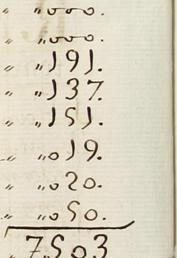 " "000.
" "000.
" "191.
" "137.
" "151.
" "019.
" "020.
" "050.
7503